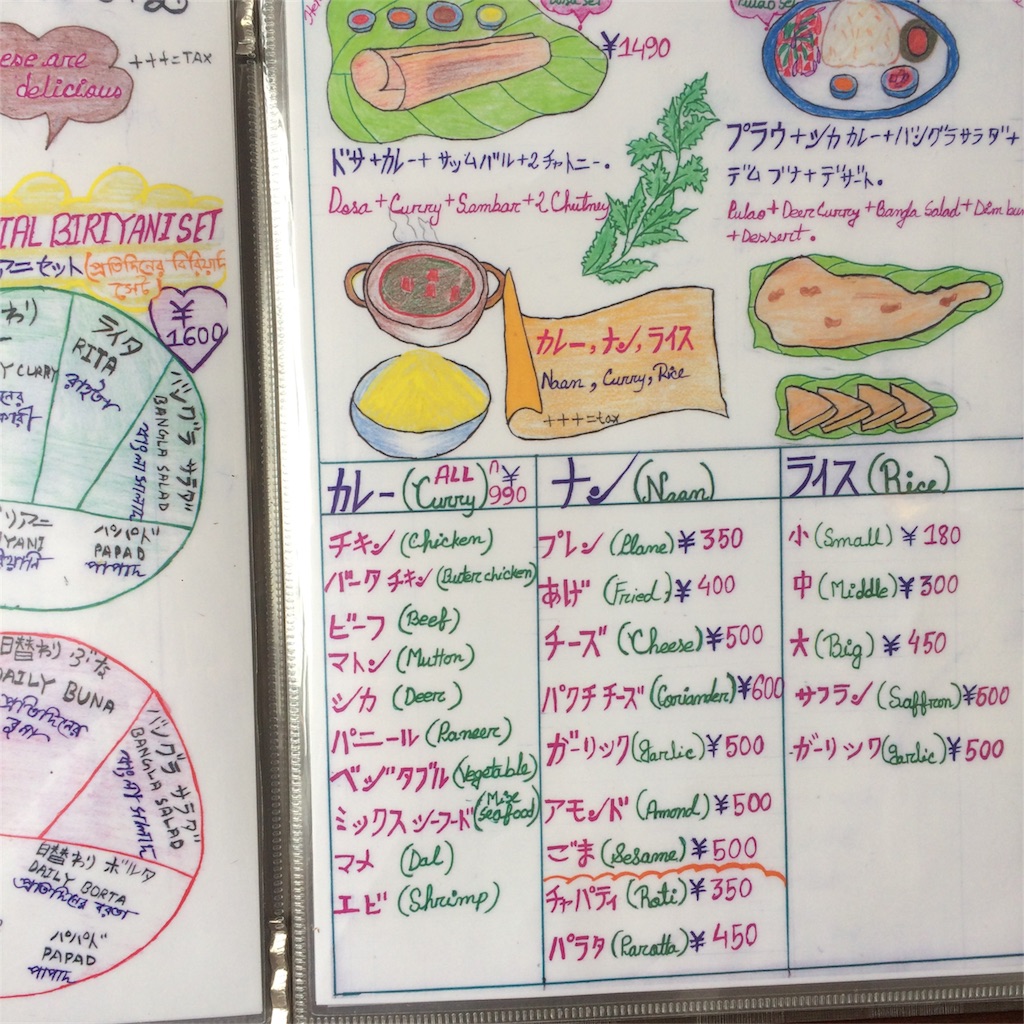 ese are
delicious
+++=TAX
IAL BIRIYANI SET
ニセット (প্রতিদিনের বিরিয়ানি
সেট)
¥
1600
わり
ライタ
RITA
রাইতা
Y CURRY
バングラ サラダ
BANGLA SALAD
বাংলা সালাদ
リアニー
IYANI
パパド
PAPAD
পাপাদ
日替わり ぶな
DAILY BUNA
প্রতিদিনের
バングラ サラダ
BANGLA SALAD
বাংলা সালাদ
日替わり ボルタ
DAILY BORTA
প্রতিদিনের বরতা
パパド
PAPAD
পাপাদ
¥1490
ドサ+カレー+サッムバル+2チャトニー。
Dosa+Curry+Sambar+2 Chutney
プラウ+シカカレー+バングラサラダ+
デムブナ+デザート。
Pulao+Deer Curry+Bangla Salad+Dim bu
+Dessert.
カレー,ナン,ライス
Naan, Curry, Rice
+++=tax
カレー (Curry) ALL ¥990
チキン (Chicken)
バータチキン (Buter chicken)
ビーフ (Beef)
マトン (Mutton)
シカ (Deer)
パニール (Paneer)
ベッジタブル (Vegetable)
ミックスシーフード (Mixe seafood)
マメ (Dal)
エビ (Shrimp)
ナン (Naan)
プレン (Plane) ¥350
あげ (Fried) ¥400
チーズ (Cheese) ¥500
パクチチーズ (Coriander) ¥600
ガーリック (garlic) ¥500
アモンド (Amond) ¥500
ごま (Sesame) ¥500
チャパティ (Roti) ¥350
パラタ (Parotta) ¥450
ライス (Rice)
小 (Small) ¥180
中 (Middle) ¥300
大 (Big) ¥450
サフラン (Saffron) ¥500
ガーリック (garlic) ¥500